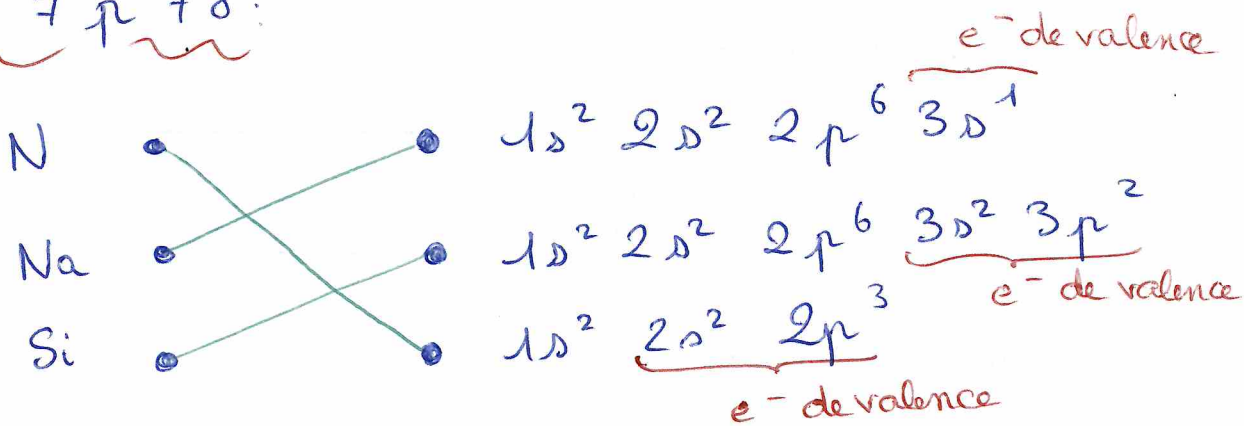 7 p 70:
e⁻ de valence
N 1s² 2s² 2p⁶ 3s¹
Na 1s² 2s² 2p⁶ 3s² 3p²
e⁻ de valence
Si 1s² 2s² 2p³
e⁻ de valence